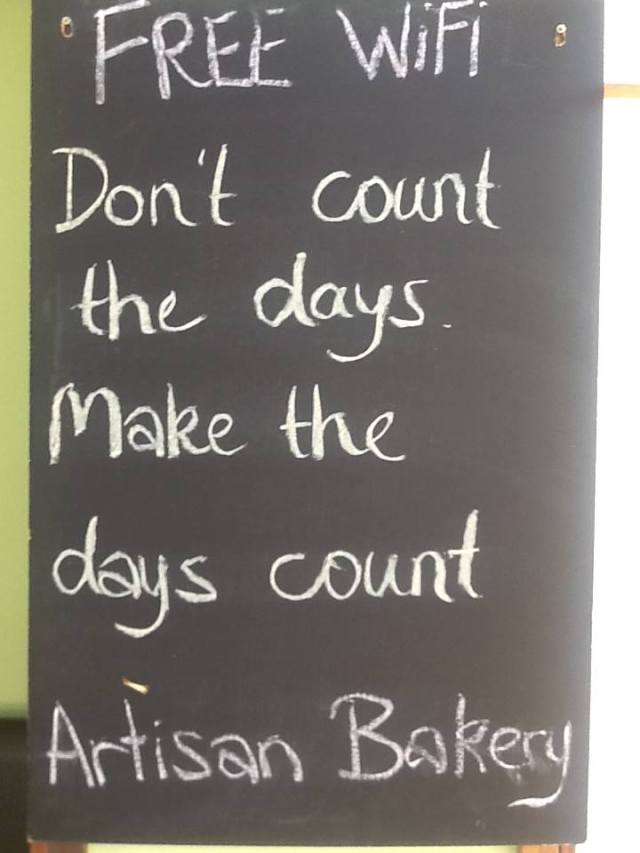 FREE WiFi
Don't count
the days.
Make the
days count
Artisan Bakery